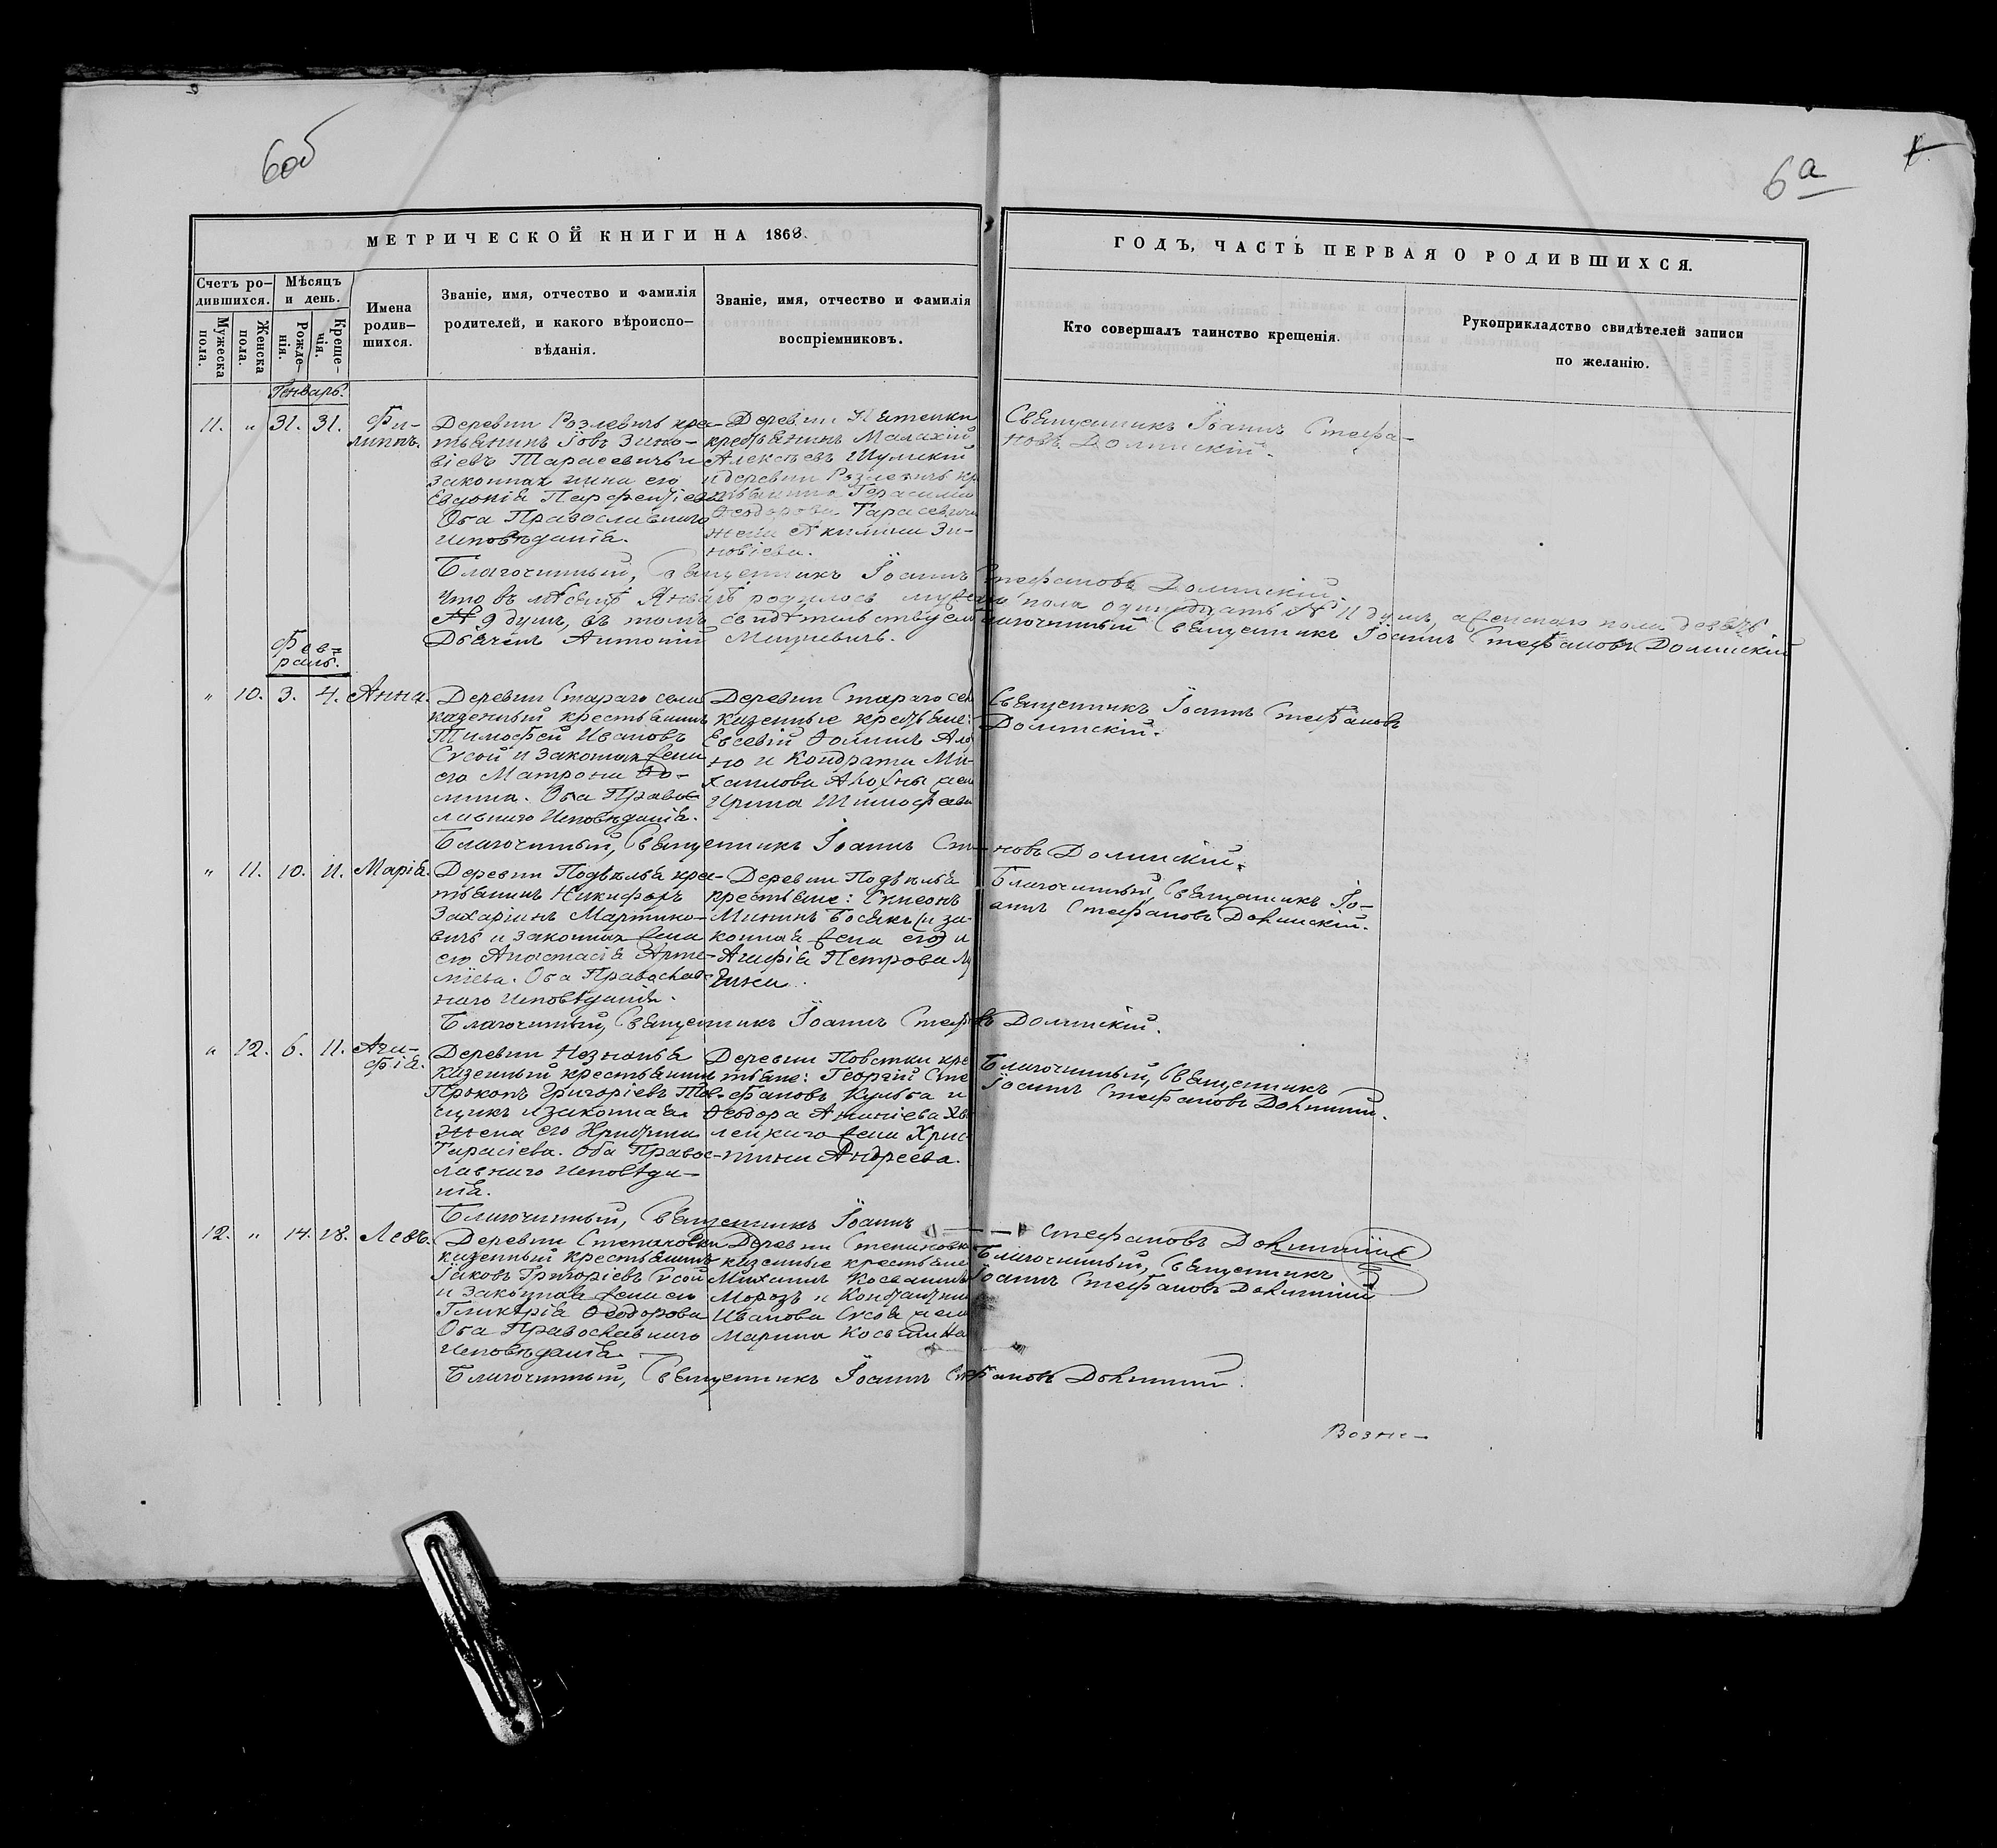 6об
6а
МЕТРИЧЕСКОЙ КНИГИ НА 1868.
ГОДЪ, ЧАСТЬ ПЕРВАЯ О РОДИВШИХСЯ.
Счетъ ро-
дившихся.
Мѣсяцъ
и день.
Мужеска
пола.
Женска
пола.
Рожде-
нія.
Креще-
нія.
Имена
родив-
шихся.
Званіе, имя, отчество и фамилія
родителей, и какого вѣроиспо-
вѣданія.
Званіе, имя, отчество и фамилія
воспріемниковъ.
Кто совершалъ таинство крещенія.
Рукоприкладство свидѣтелей записи
по желанію.
Генварь.
11. " 31. 31. Фи-
липпъ.
Деревни Розлевичъ кре-
тьянинъ Іовъ Зино-
віевъ Тарасевичъ и
законная жена его
Оба Православнаго
Исповѣданія.
Деревни
крестьянинъ Малахій
Алексѣевъ Шумскій
и деревни Розлевичъ кр
Герасима
Ѳеодорова Тарасевича
жена Акилина Зи-
новіева.
Священникъ Іоаннъ Стефа-
новъ Долинскій.
Благочинный, Священникъ Іоаннъ Стефановъ Долинскій.
Что въ мѣсяцѣ Январѣ родилось мужеска пола одинадцать № 11 душъ, а женскаго пола девять
№ 9 душъ, въ томъ свидѣтельствуемъ Благочинный Священникъ Іоаннъ Стефановъ Долинскій
Дьячекъ Антоній Мицкевичъ.
Фев-
раль.
" 10. 3. 4. Анна.
Деревни Стараго села
казенный крестьянинъ
Тимофей Ивановъ
Сусой и законная жена
его Матрона Ѳо-
мина. Оба Правос-
лавнаго Исповѣданія.
Деревни Стараго сел
казенные крестьяне:
Евсевій Ѳоминъ
но и Кондрата Ми-
хаилова жена
Ирина Тимофеева
Священникъ Іоаннъ Стефановъ
Долинскій.
Благочинный, Священникъ Іоаннъ Сте-новъ Долинскій.
" 11. 10. 11. Марія.
Деревни Подѣлья крес-
тьянинъ Никифоръ
Захаріинъ Мартино-
вичъ и законная жена
его Анастасія Арте-
міева. Оба Православ-
наго Исповѣданія.
Деревни Подѣлья
крестьяне: Симеонъ
Мининъ Босякъ (и за-
конная жена его) и
Агафія Петрова
Благочинный, Священникъ Іо-
аннъ Стефановъ Долинскій.
Благочинный, Священникъ Іоаннъ Стефовъ Долинскій.
" 12. 6. 11. Ага-
фія.
Деревни Незнанья
казенный крестьянинъ
Прокопъ Григоріевъ Тов-
щикъ и законная
жена его Христина
Тарасіева. Оба Правос-
лавнаго Исповѣда-
нія.
Деревни Повстки кре
тьяне: Георгій Сте
фановъ Кульба и
Ѳеодора Ананіева
лецкаго жена Хрис-
тина Андреева.
Благочинный, Священникъ
Іоаннъ Стефановъ Долинскій.
Благочинный, Священникъ Іоаннъ Стефановъ Долинскій
12. " 14. 28. Левъ.
Деревни Степановки
казенный крестьянинъ
Іаковъ Григоріевъ Сусой
и законная жена его
Гликерія Ѳеодорова
Оба Православнаго
Исповѣданія.
Деревни Степановки
казенные крестьяне
Михаилъ Косьминъ
Морозъ и Константина
Иванова Сусоя жена
Марина Косьмина
Благочинный, Священникъ
Іоаннъ Стефановъ Долинскій
Благочинный, Священникъ Іоаннъ Стефановъ Долинскій.
Возне-